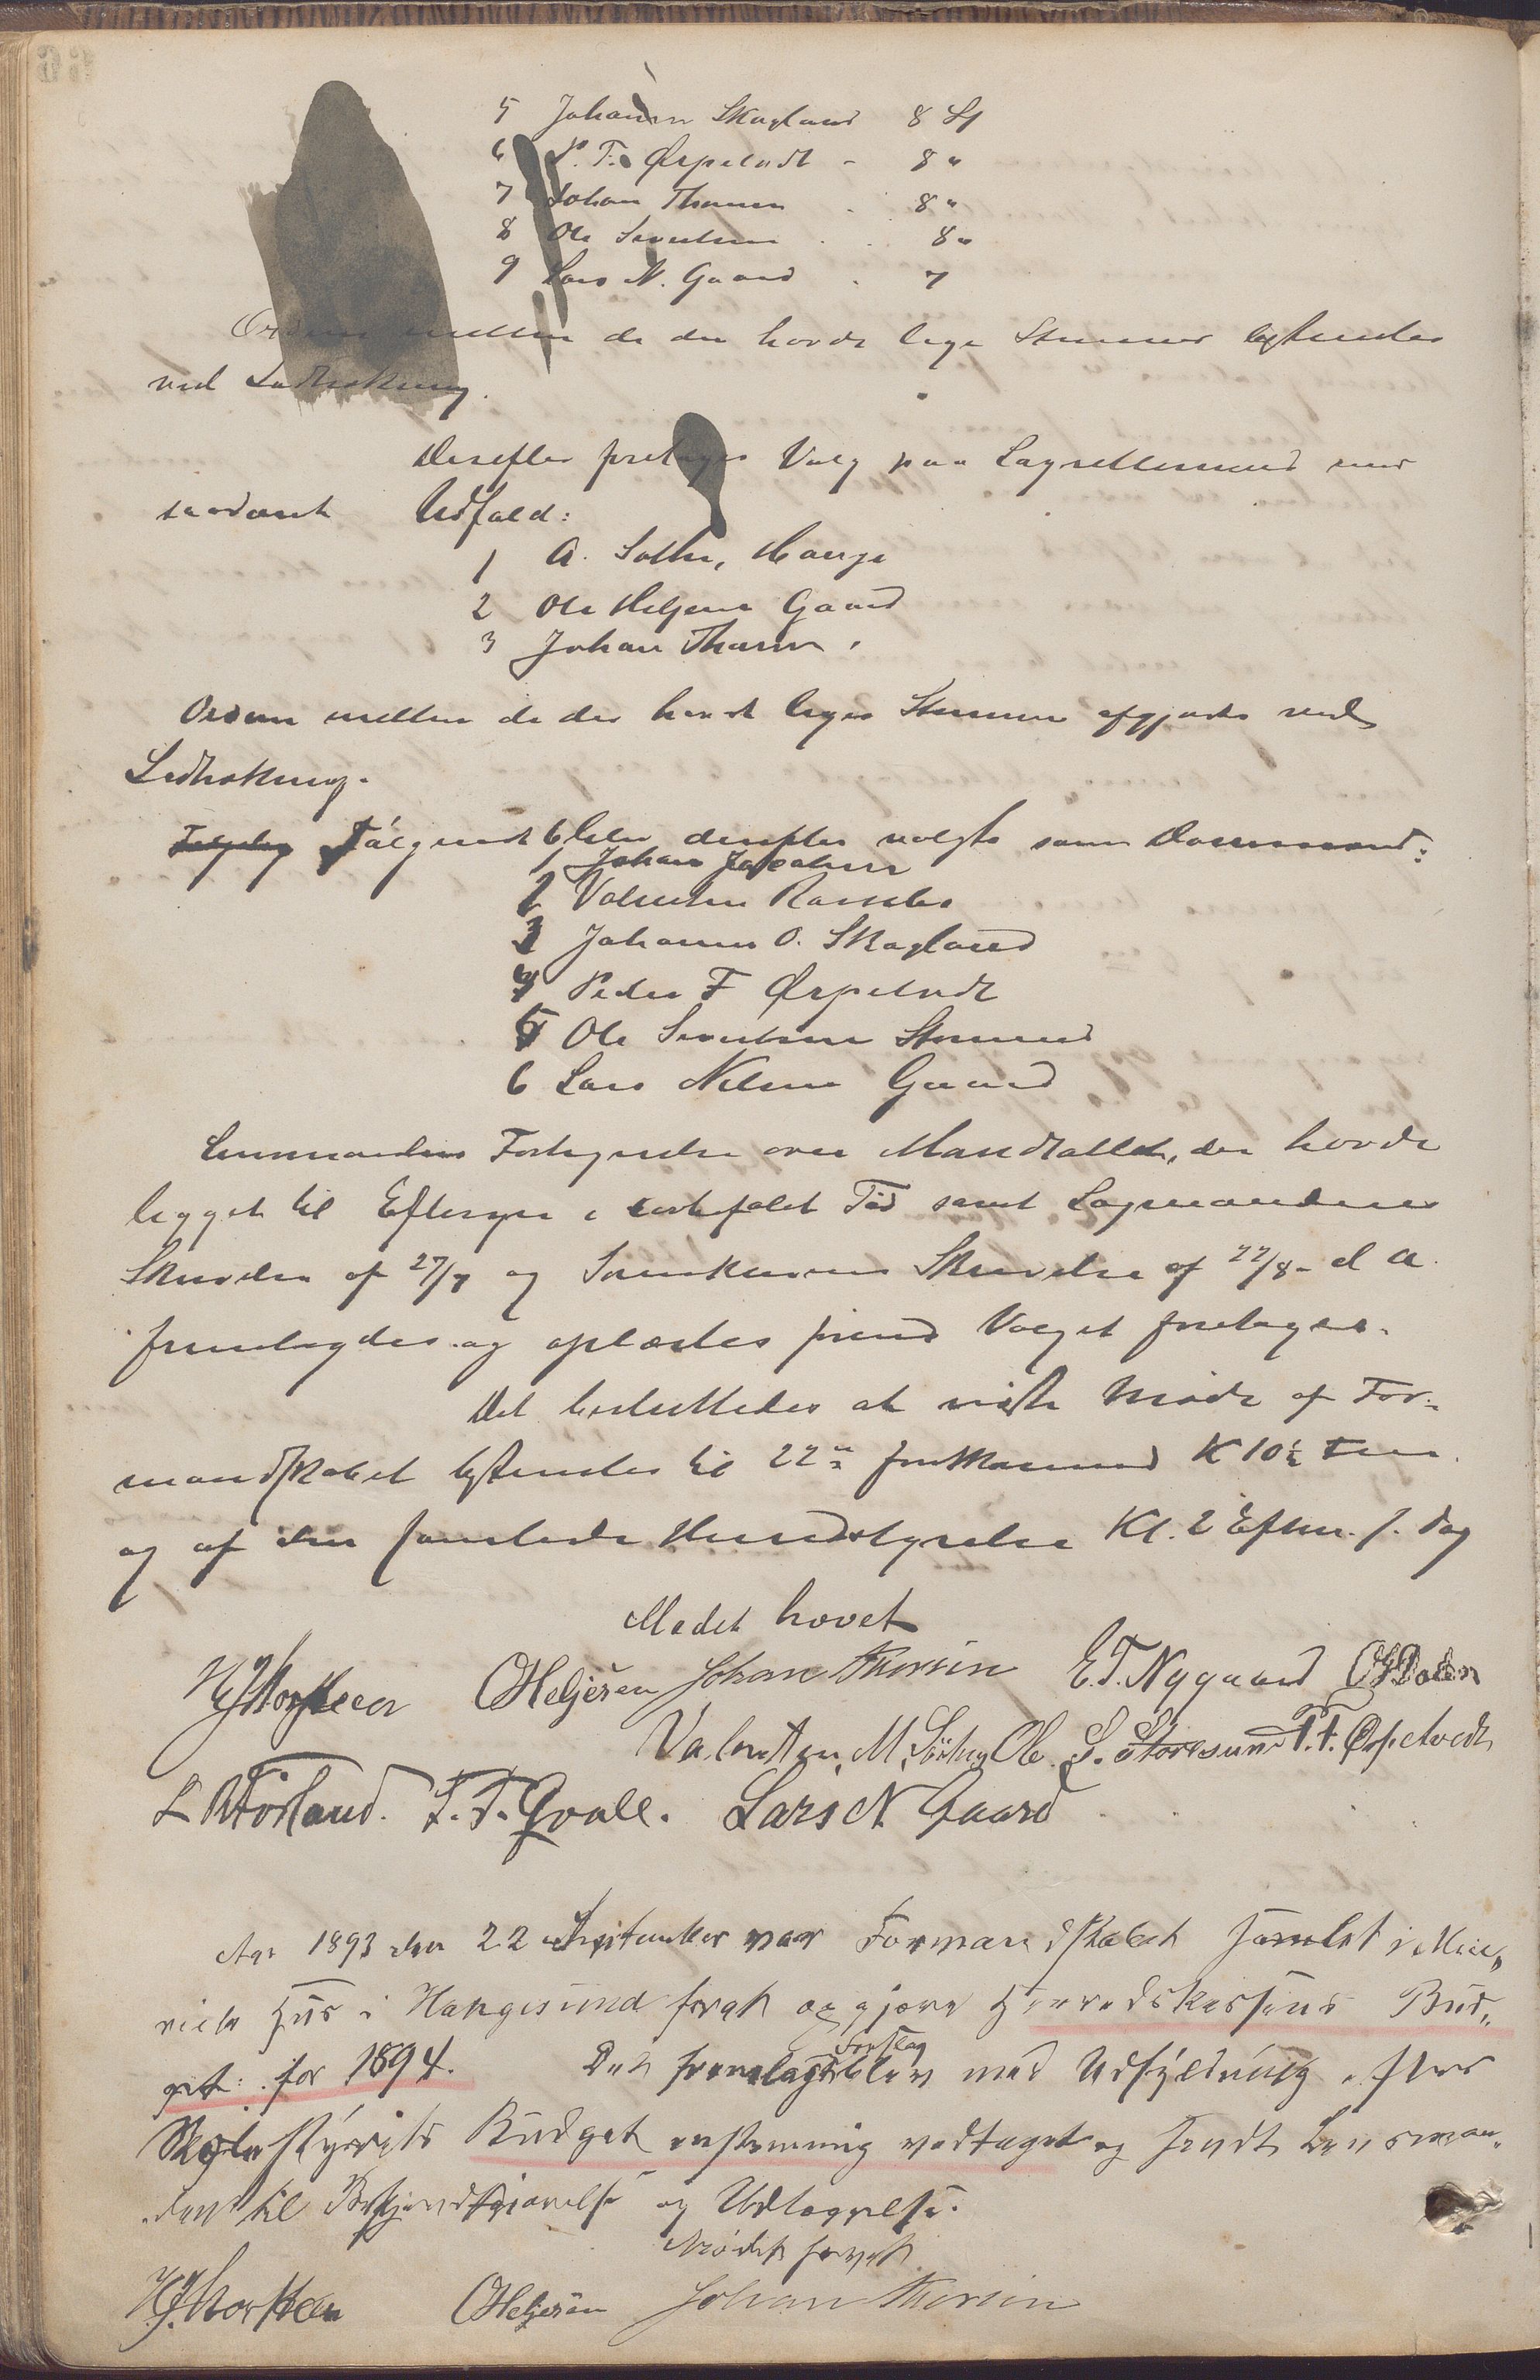 5 Johannes Skagland 8 St
6 P. T. Ørpetvedt - 8 "
7 Johan Thorsen . 8 "
8 Ole Sivertsen . . 8 "
9 Lars N. Gaard . 7
Ordenen mellem de der havde lige Stemmer bestemtes
ved Lodtrækning.
Derefter foretoges Valg paa Lagrettesmænd med
saadant Udfald:
1 A. Sæther, Hauge
2 Ole Heljesen Gaard
3 Johan Thorsen
Ordenen mellem de der havde liges Stemmer afgjordes ved
Lodtrækning.
Følgende 6 blev derefter valgte som Domsmænd:
1 Johan Jacobsen
2 Valentin
3 Johannes O. Skagland
4 Peder T Ørpetvedt
5 Ole Sivertsen
6 Lars Nilsen Gaard
Lensmandens Fortegnelse over Mandtallet, der havde
ligget til Eftersyn i lovbefalet Tid samt Lagmandens
Skrivelse af 27/7 og Sorenskriverens Skrivelse af 22/8 - d A.
fremlagdes og oplæstes førend Valget foretoges.
Det besluttedes at næste Møde af For-
mandskabet bestemtes til 22de førstkommend K 10½ Fm.
og af den samlede Herredstyrelse Kl. 2 Efterm. s. Dag
Mødet hævet
OHeljesen Johan Thorsen E. T. Nygaard
Valentin M. Ole S. Storesund P. T. Ørpetvedt
T. T. Qvale. Lars N Gaard
Aar 1893 den 22 September var Formandskabet samlet i
Hus i Haugesund for at opgjøre Herredskassens Bud-
get for 1894. Det fremlagte Forslag blev med Udfyldning efter
Skolestyrets Budget enstemmig vedtaget og sendt Lensman-
den til Bekjendtgjørelse og Udlæggelse.
Mødet hævet
OHeljesen Johan Thorsen